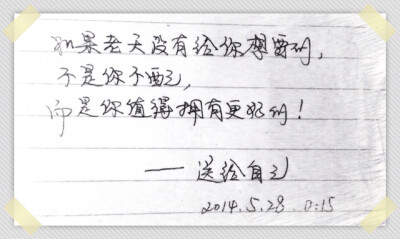 如果老天没有给你想要的，
不是你不配，
而是你值得拥有更好的！
——送给自己
2014.5.28. 0:15